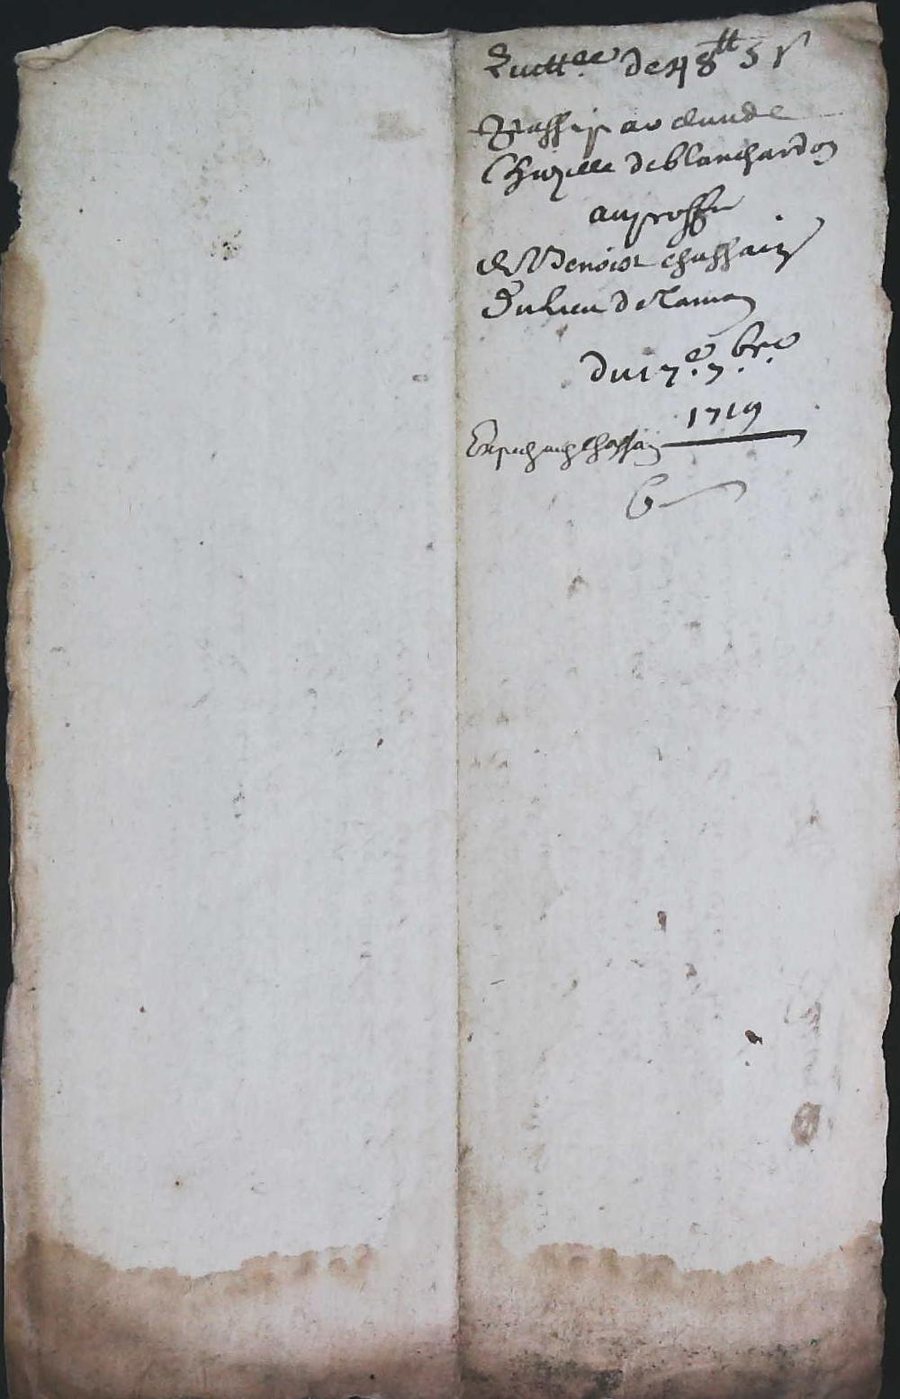 Quittce de 48tt 5 s
Passé par Claude
Chizelle de blanchardon
au proffit
de Benoist Chassain
du lieu de
du 17e 7bre
1719
Expedié Chassain
6